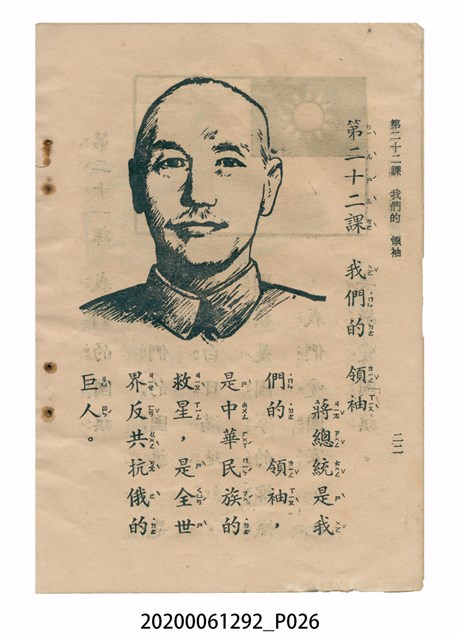 第二十二課　我們的　領袖
二二
第二十二課　我們的　領袖
蔣總統是我
們的　領袖，
是中華民族的
救星，是全世
界反共抗俄的
巨人。
20200061292_P026